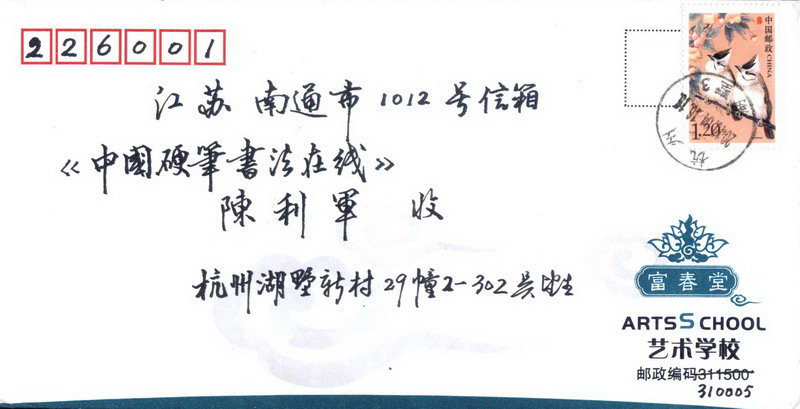 226001
中国邮政 CHINA
1.20
江苏南通市1012号信箱
《中國硬筆書法在线》
陳利軍 收
杭州湖墅新村29幢2-302吴
富春堂
ARTSSCHOOL
艺术学校
邮政编码311500
310005